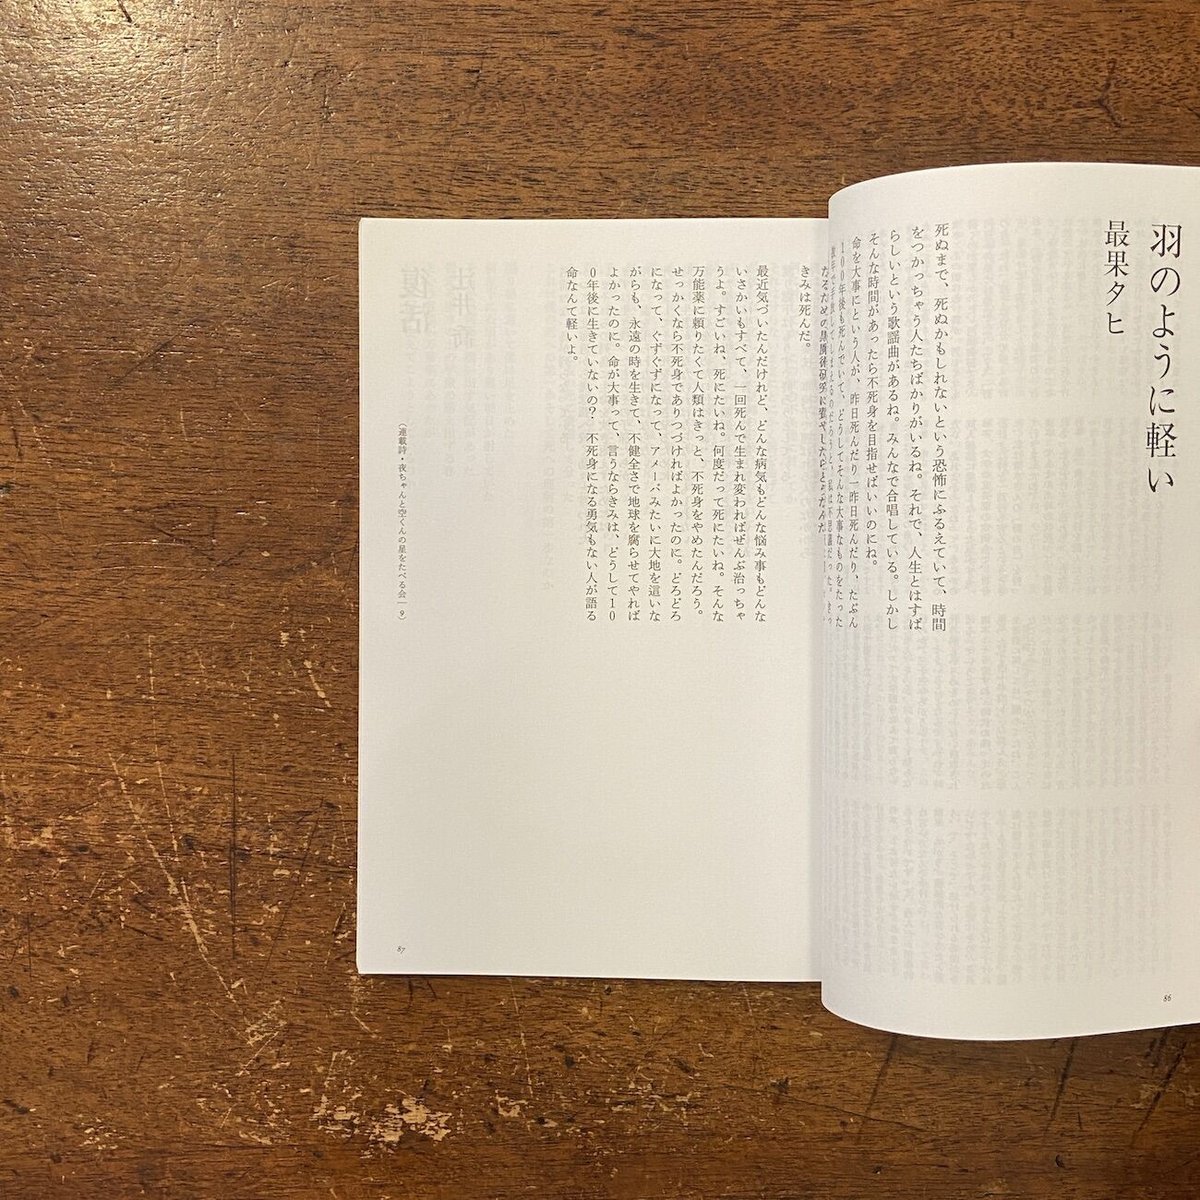 羽のように軽い
最果タヒ
死ぬまで、死ぬかもしれないという恐怖にふるえていて、時間
をつかっちゃう人たちばかりがいるね。それで、人生とはすば
らしいという歌謡曲があるね。みんなで合唱している。しかし
そんな時間があったら不死身を目指せばいいのにね。
命を大事にという人が、昨日死んだり一昨日死んだり、たぶん
100年後も死んでいて、どうしてそんな大事なものをたった
きみは死んだ。
最近気づいたんだけれど、どんな病気もどんな悩み事もどんな
いさかいもすべて、一回死んで生まれ変わればぜんぶ治っちゃ
うよ。すごいね、死にたいね。何度だって死にたいね。そんな
万能薬に頼りたくて人類はきっと、不死身をやめたんだろう。
せっかくなら不死身でありつづければよかったのに。どろどろ
になって、ぐずぐずになって、アメーバみたいに大地を這いな
がらも、永遠の時を生きて、不健全さで地球を腐らせてやれば
よかったのに。命が大事って、言うならきみは、どうして10
0年後に生きていないの? 不死身になる勇気もない人が語る
命なんて軽いよ。
(連載詩・夜ちゃんと空くんの星をたべる会―9)
86
87